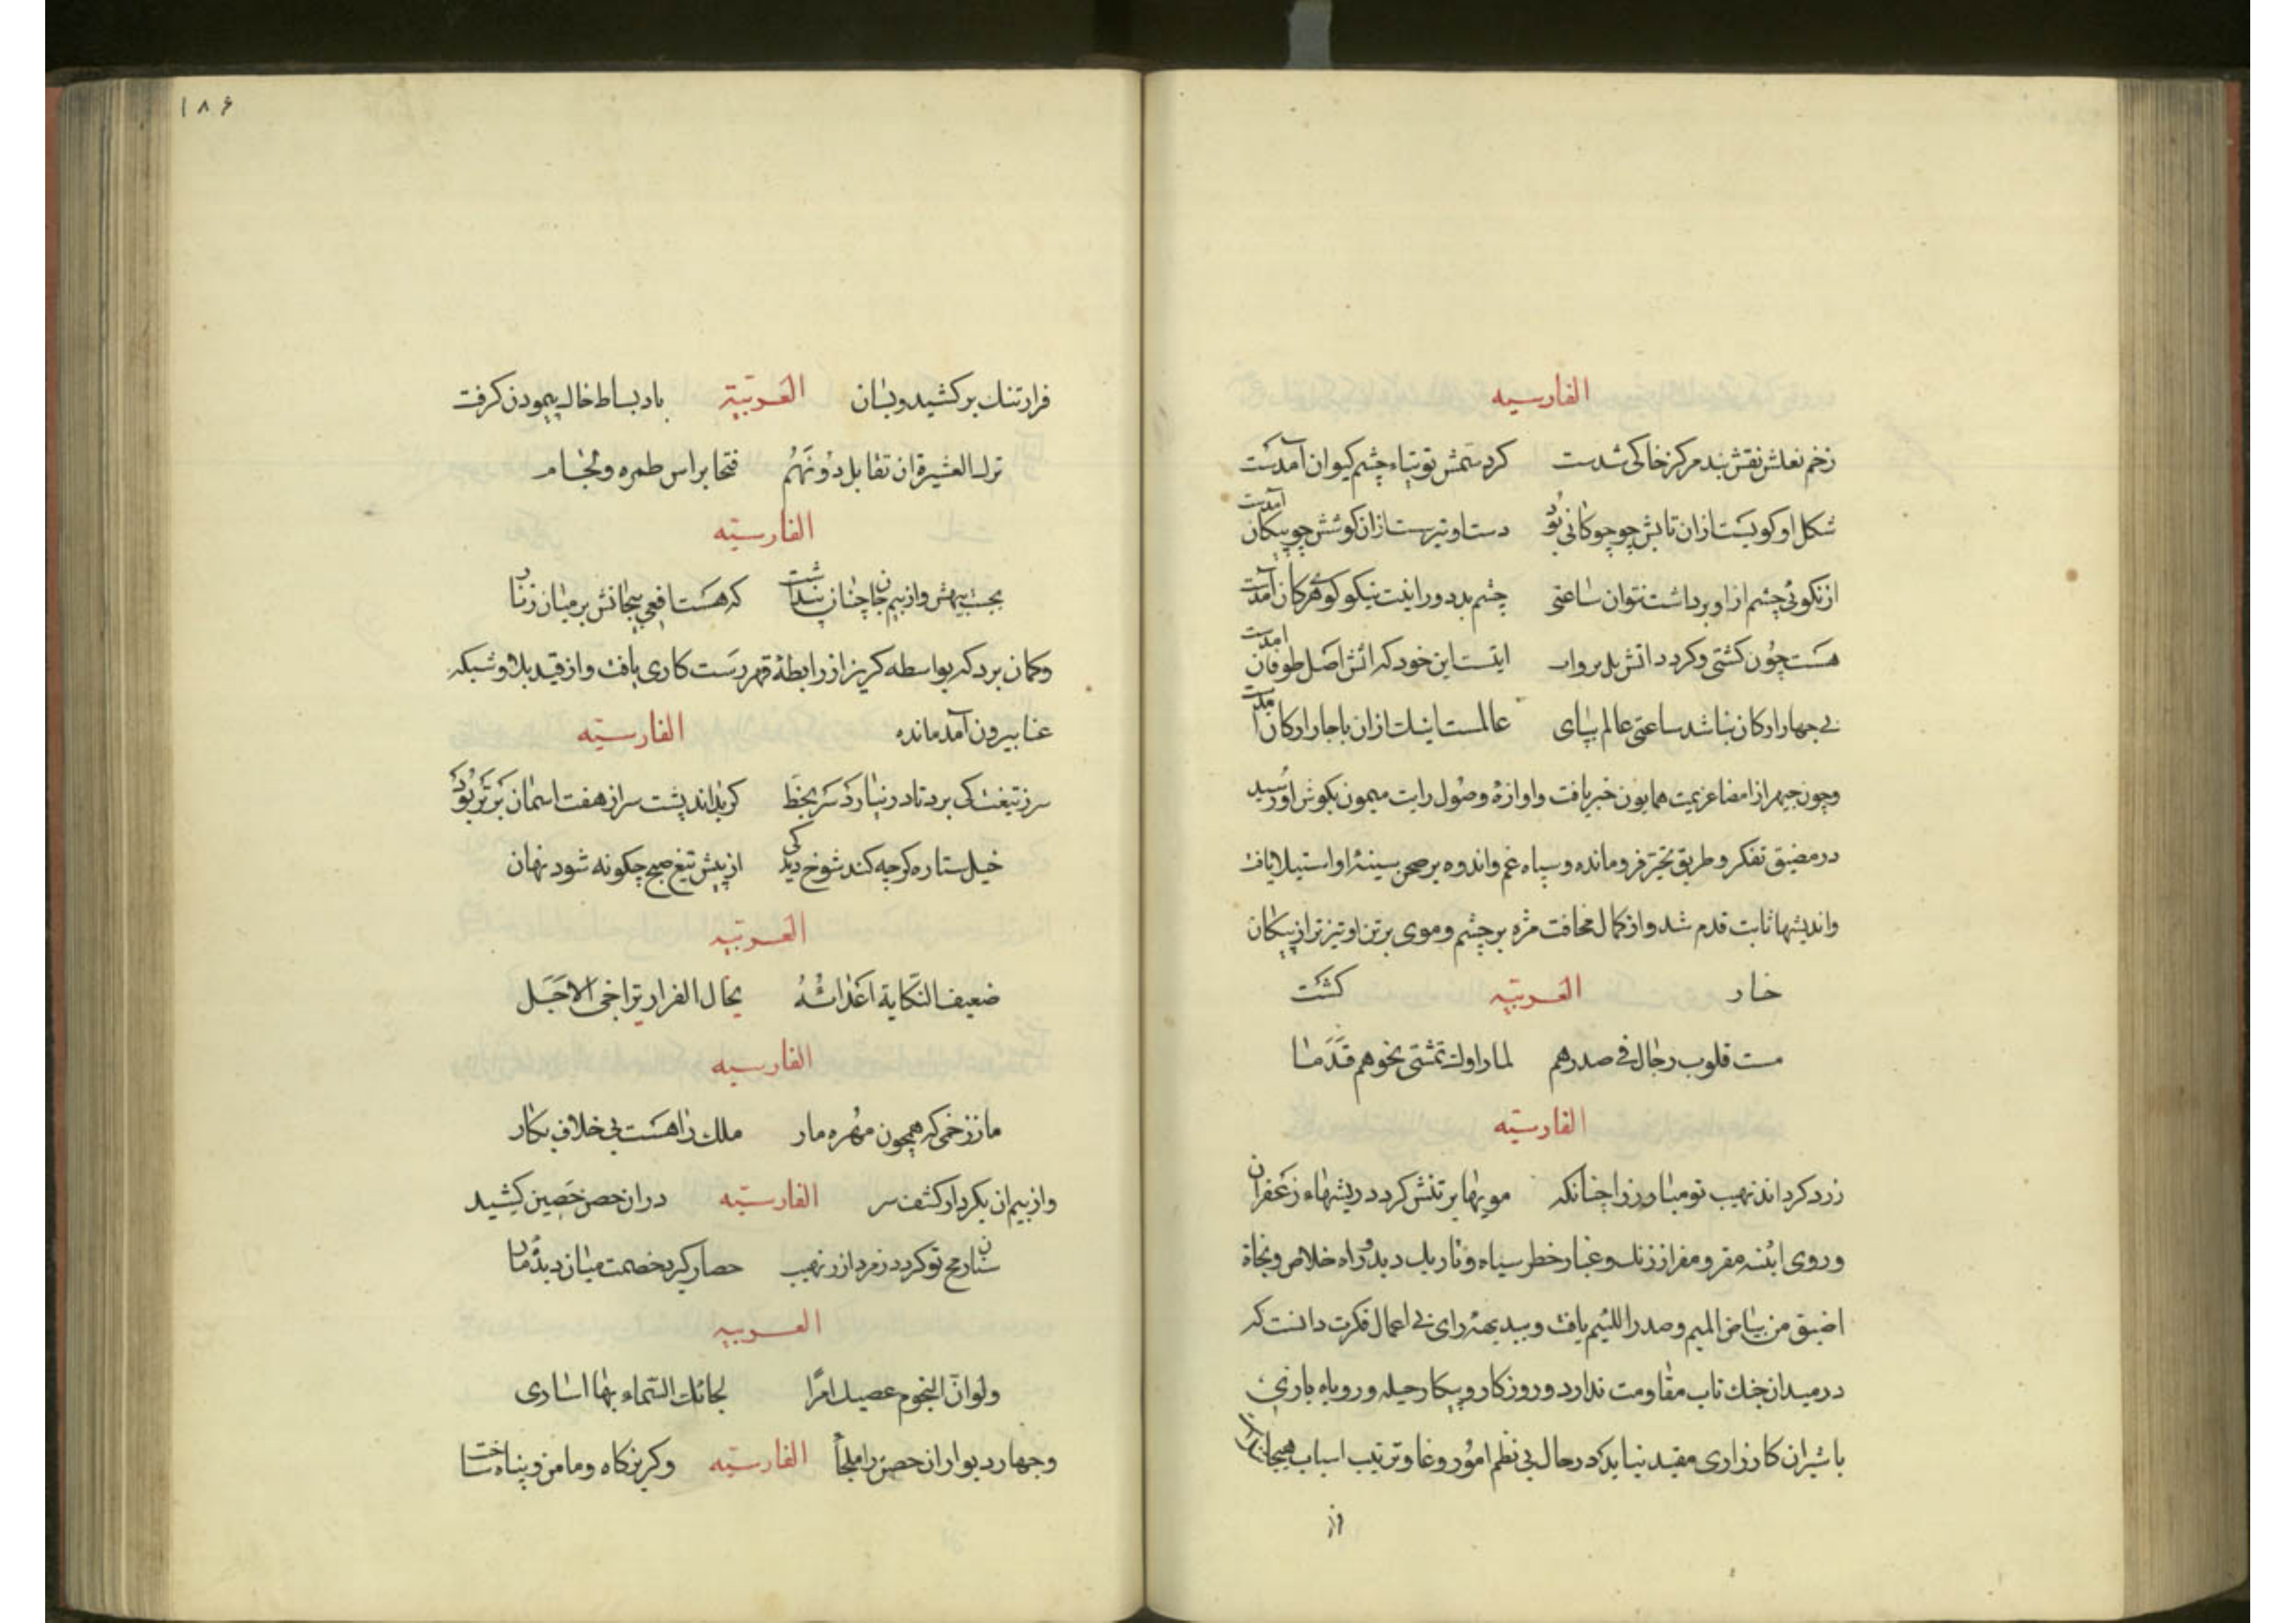 الفارسیه
زخم نعلش نقش بند مرکز خاکی شدست کرد سمش توتیاء چشم کیوان آمدست
شکل او کویست ازان تابش چو چوکانی بود دست او تیرست ازان کوشش چو پیکان آمدست
از نکوئی چشم ازو برداشت نتوان ساعتی چشم بد دور اینت نیکو کوهر کان آمدست
هست چون کشتی و کردد آتش بدر وار اینت این خود که آتش اصل طوفان آمدست
بی چهار ارکان نباشد ساعتی عالم بپای عالمست اینک ازان باچار ارکان آمدست
وچون جیهر از امضا عزیمت همایون خبر یافت واوازهٔ وصول رایت میمون بکوش او رسید
در مضیق تفکر و طریق تحیر فرومانده وسپاه غم واندوه بر صحن سینهٔ او استیلا یافت
واندیشها ثابت قدم شد واز کمال مخافت مژه بر چشم وموی بر تن او تیزتر از پیکان
خار العربیّه کشت
مست قلوب رجال فی صدرهم لما راوك تمشی نحوهم قدما
الفارسیّه
زرد کرداند نهیب تو مبارز را چنانکه مویها بر تنش کردد ریشهاء زعفران
وروی آئنه مقر و مفر از زنك وغبار خطر سیاه وتاریك دید و راه خلاص ونجاة
اضیق من بیاض المیم وصدر اللئیم یافت و ببدیهه رای بی اعمال فکرت دانست که
در میدان جنك تاب مقاومت ندارد وروز کار و پیکار حیله و روباه بازی
با شیران کارزاری مفید نیاید در حال بی نظم امور وغا وترتیب اسباب هیجا
از
۱۸۶
فرار تنك برکشید وبسان العربیّة باد بساط خاك پیمودن کرفت
ترك العشیرة ان تقابل دونهم فنحا براس طمره ولجام
الفارسیّه
بجست بیهش واز بیم جان چنان پنداشت که هست افعی پیجانش بر میان زنار
وکمان برد که بواسطه کریز از رابطهٔ قهر رست کاری یافت واز قید بلا وشبکه
عنا بیرون آمد مانده الفارسیّه
سر ز تیغت کی برد تا در نیارد سر بخط کر بلندیت سر از هفت اسمان برتر بود
خیل ستاره کرچه کند شوخ دیدکی از پیش تیغ صبح چکونه شود نهان
العربیّه
ضعیف النکایة اعدائه یخال الفرار یراخی الاجل
الفارسیه
مار زخمی که همچون مهره مار ملك را هست بی خلاف بکار
واز بیم ان بکردار کشف سر الفارسیّه در ان حصن حصین کشید
سنان رمح تو کردد زمرد از ر نهیب حصار کیرد خصمت میان دیدهٔ مار
العربیه
ولو انّ النجوم عصیك امرًا لجائك السّماء بها اساری
وچهار دیوار ان حصن را ملجأ الفارسیّه وکریزکاه ومامن وپناه ساخت